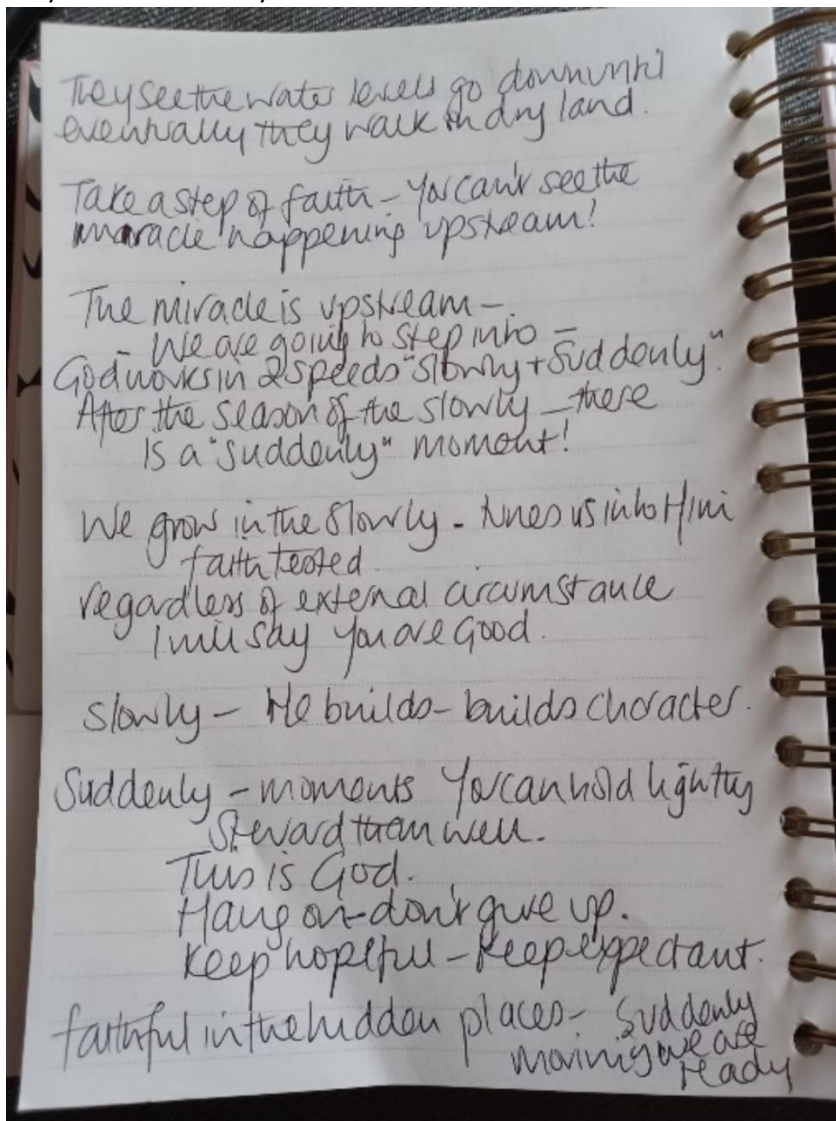 They see the water levels go down until
eventually they walk on dry land.
Take a step of faith – You can't see the
miracle happening upstream!
The miracle is upstream –
– We are going to step into –
God works in 2 speeds "slowly + Suddenly".
After the season of the slowly – there
Is a "suddenly" moment!
We grow in the slowly - tunes us into Him
faith tested
regardless of external circumstance
I will say You are Good.
Slowly – He builds – builds character.
Suddenly – moments You can hold lightly
Steward them well.
This is God.
Hang on – don't give up.
Keep hopeful – Keep expectant.
faithful in the hidden places – Suddenly
we are
ready